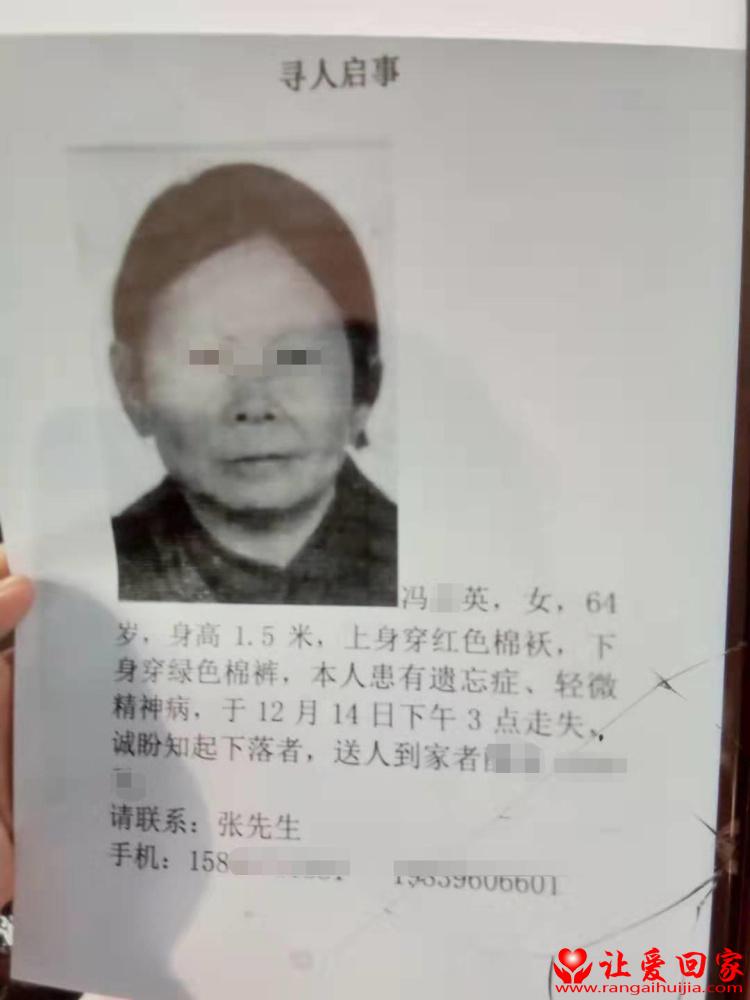 寻人启事
冯 英，女，64
岁，身高 1.5 米，上身穿红色棉袄，下
身穿绿色棉裤，本人患有遗忘症、轻微
精神病，于 12 月 14 日下午 3 点走失，
诚盼知起下落者，送人到家者
请联系：张先生
手机：158
让爱回家
www.rangaihuijia.com